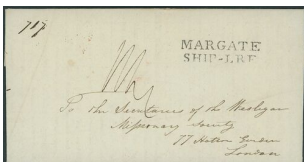 717
MARGATE
SHIP-LRE
To the Secretaries of the Wesleyan
Missionary Society
77 Hatton Garden
London